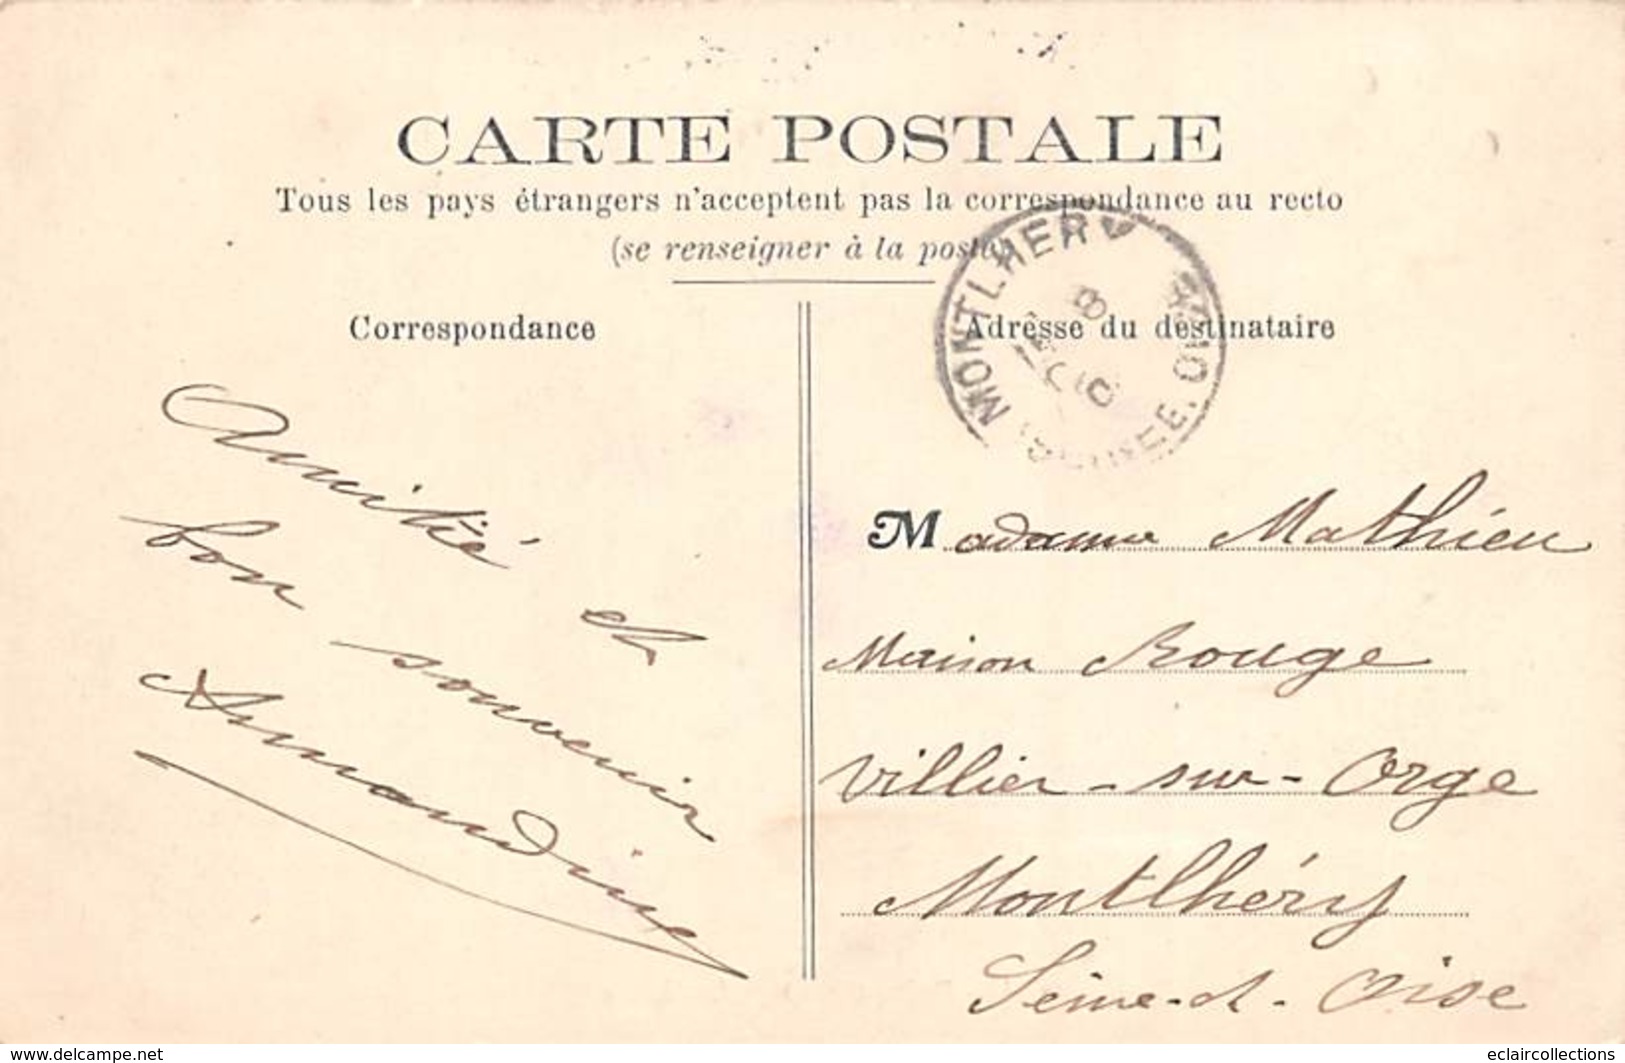 CARTE POSTALE
Tous les pays étrangers n'acceptent pas la correspondance au recto
(se renseigner à la poste)
Correspondance
Amitié et
bon souvenir
Amandine
Adresse du destinataire
MONTLHERY
8
Madame Mathieu
Maison Rouge
Villier-sur-Orge
Montlhéry
Seine-et-Oise
www.delcampe.net
eclaircollections